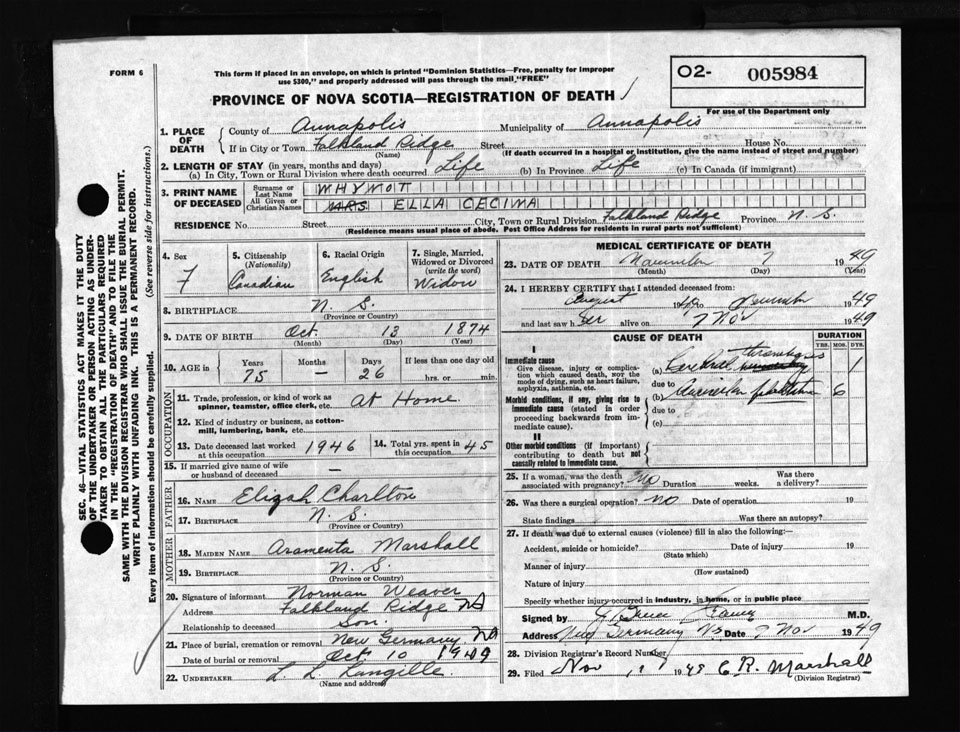 FORM 6
This form if placed in an envelope, on which is printed "Dominion Statistics—Free, penalty for improper
use $300," and properly addressed will pass through the mail "FREE"
O2- 005984
For use of the Department only
PROVINCE OF NOVA SCOTIA—REGISTRATION OF DEATH
1. PLACE OF DEATH
County of Annapolis Municipality of Annapolis
If in City or Town Falkland Ridge Street House No.
(Name) (If death occurred in a hospital or institution, give the name instead of street and number)
2. LENGTH OF STAY (in years, months and days)
(a) In City, Town or Rural Division where death occurred Life (b) In Province Life (c) In Canada (if immigrant)
3. PRINT NAME OF DECEASED
Surname or Last Name WHYNOTT
All Given or Christian Names MRS ELLA CECINA
RESIDENCE No. Street City, Town or Rural Division Falkland Ridge Province N.S.
(Residence means usual place of abode. Post Office Address for residents in rural parts not sufficient)
4. Sex F
5. Citizenship (Nationality) Canadian
6. Racial Origin English
7. Single, Married, Widowed or Divorced (write the word) Widow
8. BIRTHPLACE N. S.
(Province or Country)
9. DATE OF BIRTH Oct. 13 1874
(Month) (Day) (Year)
10. AGE in Years 75 Months – Days 26 If less than one day old hrs. or min.
OCCUPATION
11. Trade, profession or kind of work as spinner, teamster, office clerk, etc. At Home.
12. Kind of industry or business, as cotton-mill, lumbering, bank, etc.
13. Date deceased last worked at this occupation 1946
14. Total yrs. spent in this occupation 45
15. If married give name of wife or husband of deceased –
FATHER
16. NAME Elizah Charlton
17. BIRTHPLACE N. S.
(Province or Country)
MOTHER
18. MAIDEN NAME Aramenta Marshall
19. BIRTHPLACE N. S.
(Province or Country)
20. Signature of informant Norman Weaver
Address Falkland Ridge NS
Relationship to deceased Son.
21. Place of burial, cremation or removal New Germany NS
Date of burial or removal Oct. 10 1949
22. UNDERTAKER L. L. Langille.
(Name and address)
MEDICAL CERTIFICATE OF DEATH
23. DATE OF DEATH November 7 1949
(Month) (Day) (Year)
24. I HEREBY CERTIFY that I attended deceased from:
August 1949 to November 1949
and last saw her alive on 7 Nov 1949
CAUSE OF DEATH
DURATION
YRS. MOS. DYS.
I
Immediate cause
Give disease, injury or complication which caused death, NOT the mode of dying, such as heart failure, asphyxia, asthenia, etc.
(a) Cerebral thrombosis 1
due to
Morbid conditions, if any, giving rise to immediate cause (stated in order proceeding backwards from immediate cause).
(b) Auricular fibrillation 6
due to
(c)
II
Other morbid conditions (if important) contributing to death but not causally related to immediate cause.
25. If a woman, was the death associated with pregnancy? No Duration weeks. Was there a delivery?
26. Was there a surgical operation? No Date of operation 19
State findings Was there an autopsy?
27. If death was due to external causes (violence) fill in also the following:
Accident, suicide or homicide? Date of injury 19
(State which)
Manner of injury
(How sustained)
Nature of injury
Specify whether injury occurred in industry, in home, or in public place
Signed by M.D.
Address New Germany NS Date 7 Nov 1949
28. Division Registrar's Record Number
29. Filed Nov C. R. Marshall
(Division Registrar)
SEC. 46—VITAL STATISTICS ACT MAKES IT THE DUTY
OF THE UNDERTAKER OR PERSON ACTING AS UNDER-
TAKER TO OBTAIN ALL THE PARTICULARS REQUIRED
IN THE "REGISTRATION OF DEATH" AND TO FILE THE
SAME WITH THE DIVISION REGISTRAR WHO SHALL ISSUE THE BURIAL PERMIT.
WRITE PLAINLY WITH UNFADING INK. THIS IS A PERMANENT RECORD.
Every item of information should be carefully supplied. (See reverse side for instructions.)